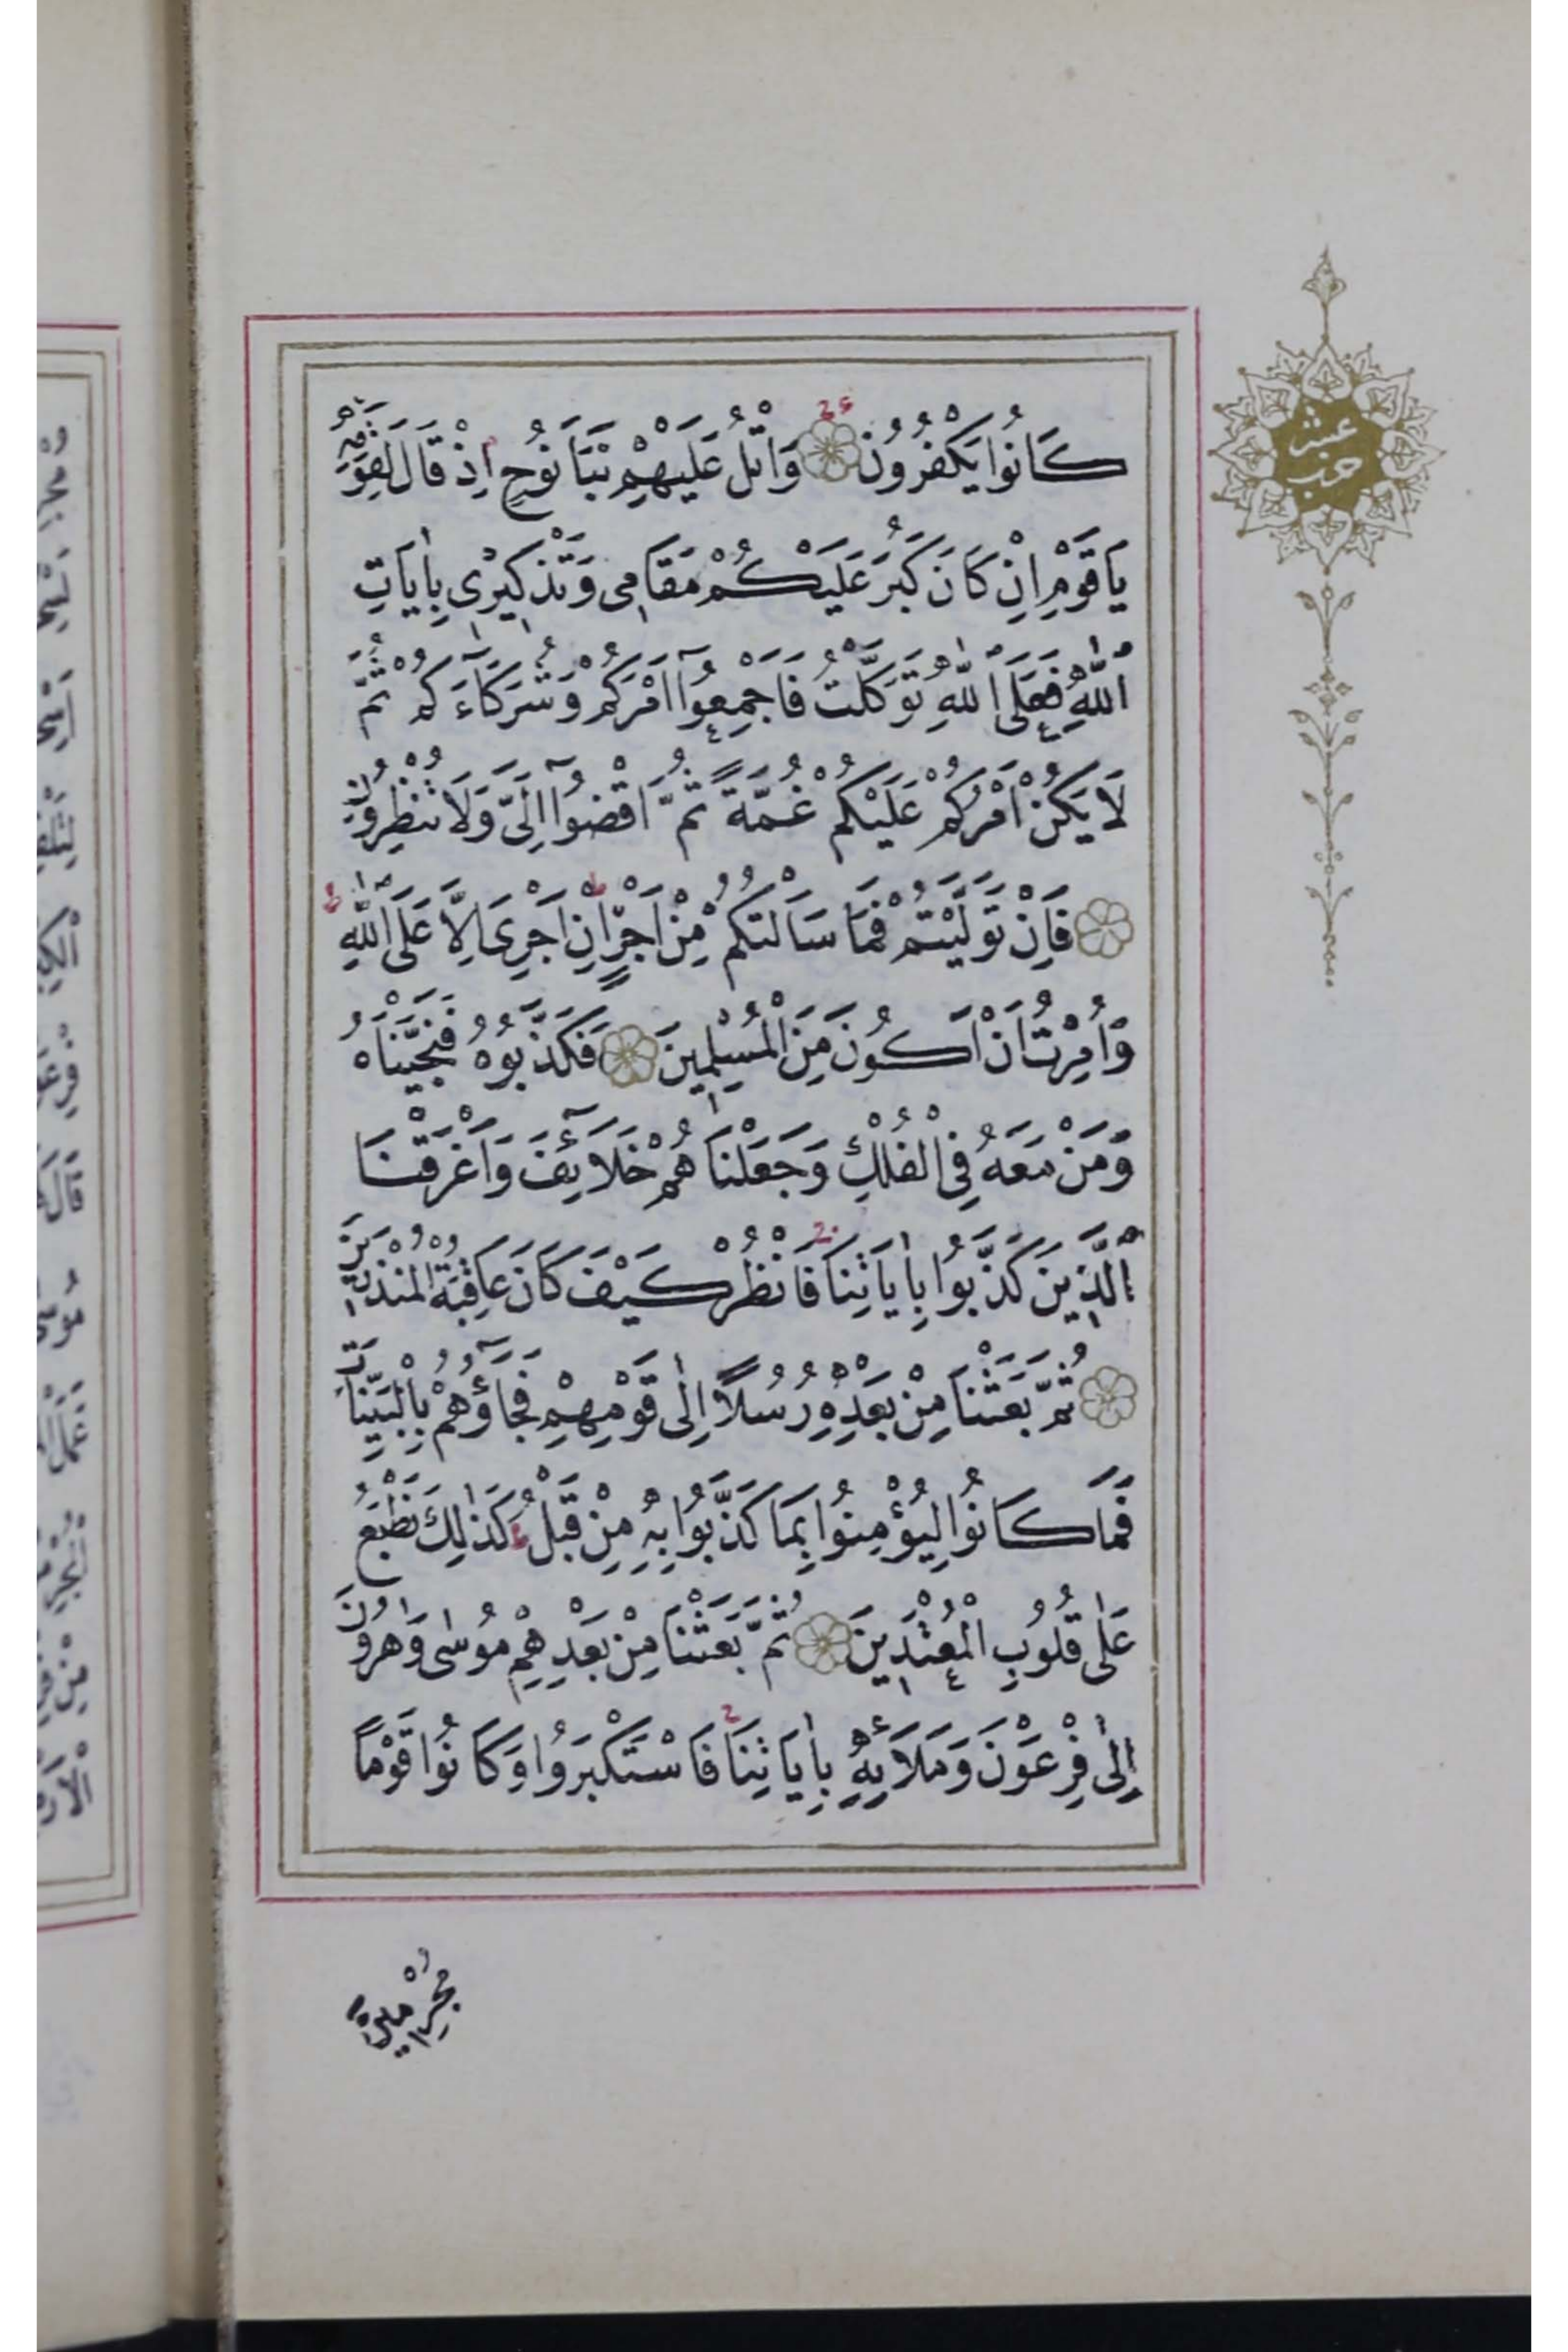 كَانُوا يَكْفُرُونَ وَاتْلُ عَلَيْهِمْ نَبَاَ نُوحٍ اِذْ قَالَ لِقَوْمِهِ
يَاقَوْمِ اِنْ كَانَ كَبُرَ عَلَيْكُمْ مَقَامِى وَتَذْكِيرِى بِاٰيَاتِ
اللّٰهِ فَعَلَى اللّٰهِ تَوَكَّلْتُ فَاَجْمِعُوٓا اَمْرَكُمْ وَشُرَكَآءَكُمْ ثُمَّ
لَا يَكُنْ اَمْرُكُمْ عَلَيْكُمْ غُمَّةً ثُمَّ اقْضُوٓا اِلَىَّ وَلَا تُنْظِرُونِ
فَاِنْ تَوَلَّيْتُمْ فَمَا سَاَلْتُكُمْ مِنْ اَجْرٍ اِنْ اَجْرِىَ اِلَّا عَلَى اللّٰهِ
وَاُمِرْتُ اَنْ اَكُونَ مِنَ الْمُسْلِمِينَ فَكَذَّبُوهُ فَنَجَّيْنَاهُ
وَمَنْ مَعَهُ فِى الْفُلْكِ وَجَعَلْنَاهُمْ خَلَآئِفَ وَاَغْرَقْنَا
الَّذِينَ كَذَّبُوا بِاٰيَاتِنَا فَانْظُرْ كَيْفَ كَانَ عَاقِبَةُ الْمُنْذَرِينَ
ثُمَّ بَعَثْنَا مِنْ بَعْدِهِ رُسُلًا اِلٰى قَوْمِهِمْ فَجَآؤُهُمْ بِالْبَيِّنَاتِ
فَمَا كَانُوا لِيُؤْمِنُوا بِمَا كَذَّبُوا بِهِ مِنْ قَبْلُ كَذٰلِكَ نَطْبَعُ
عَلٰى قُلُوبِ الْمُعْتَدِينَ ثُمَّ بَعَثْنَا مِنْ بَعْدِهِمْ مُوسٰى وَهٰرُونَ
اِلٰى فِرْعَوْنَ وَمَلَائِهِ بِاٰيَاتِنَا فَاسْتَكْبَرُوا وَكَانُوا قَوْمًا
مُجْرِمِينَ
عشر
حزب